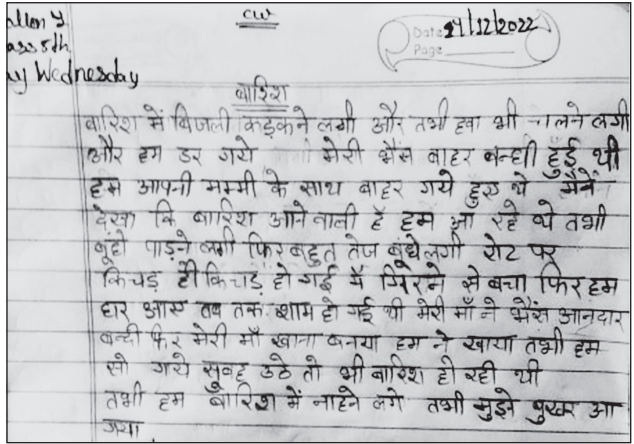 CW
Date 14/12/2022
Page
ass 5th
Wednesday
बारिश
बारिश में बिजली कड़कने लगी और तभी हवा भी चलने लगी
और हम डर गये मेरी भैंस बाहर बन्धी हुई थी
हम आपनी मम्मी के साथ बाहर गये हुए थे मैंने
देखा कि बारिश आने वाली है हम आ रहे थे तभी
बूहो पाड़ने लगी फिर बहुत तेज बुंधे लगी रोट पर
किचड़ ही किचड़ हो गई मैं गिरने से बचा फिर हम
घर आस तब तक शाम हो गई थी मेरी माँ ने भैंस आनदार
बन्दी फिर मेरी माँ खाना बनया हम ने खाया तभी हम
सो गये सुबह उठे तो भी बारिश हो रही थी
तभी हम बारिश में नाहने लगे तभी मुझे बुखर आ
गया